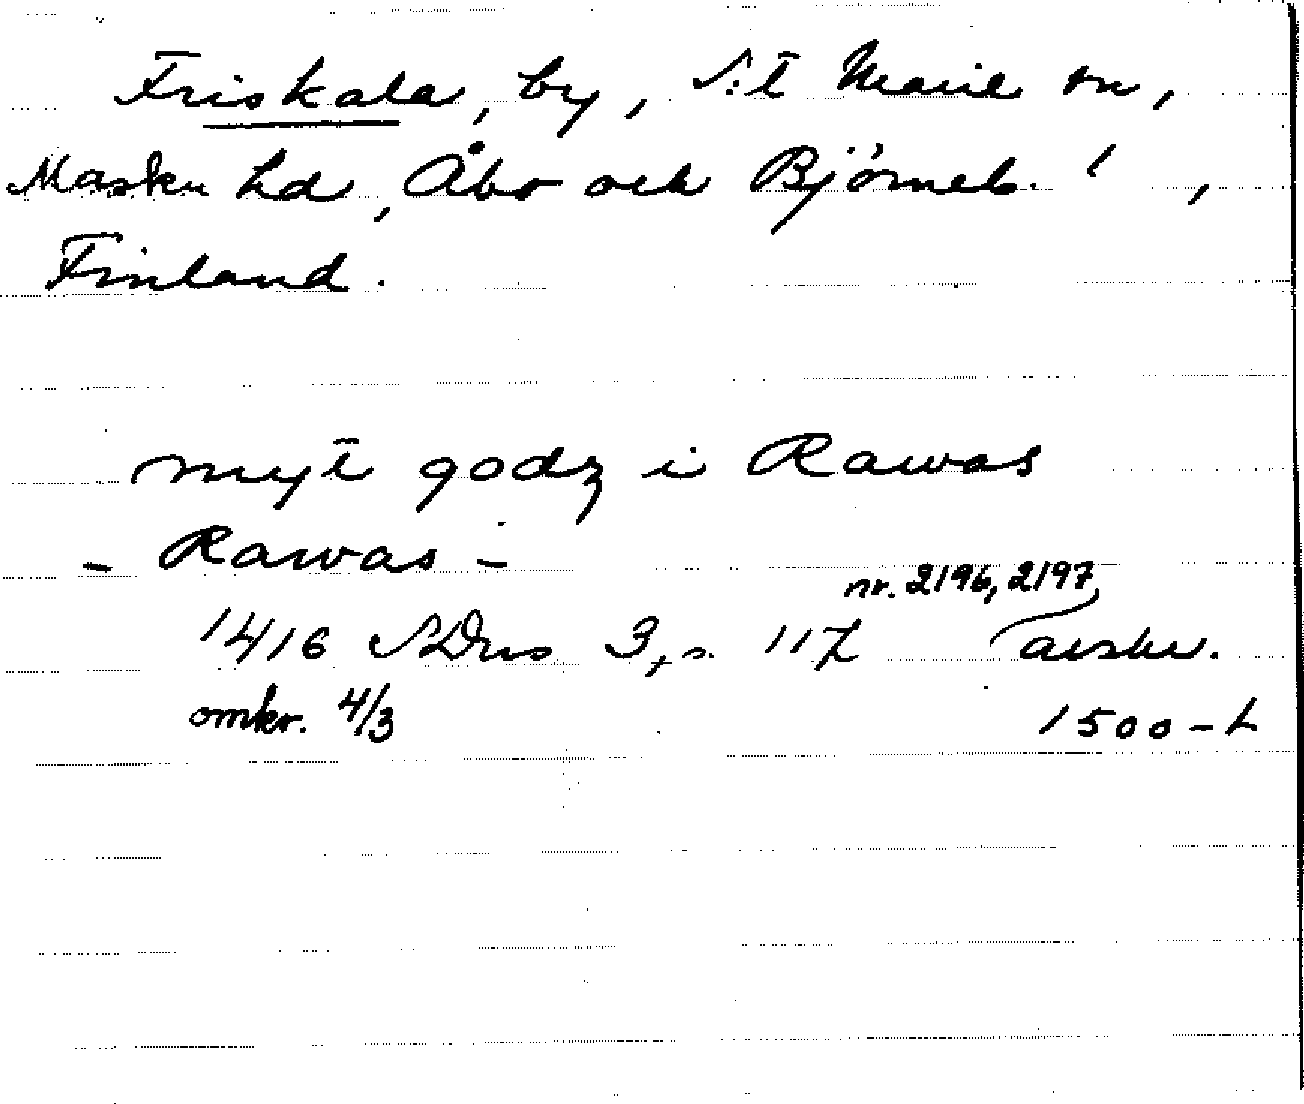 Friskala, by, S:t Marie sn,
Masku hd, Åbo och Björneb. l,
Finland.
myt godz i Rawas
- Rawas -
nr. 2196, 2197
1416 SDns 3, s. 117 avskr.
omkr. 4/3 1500-t